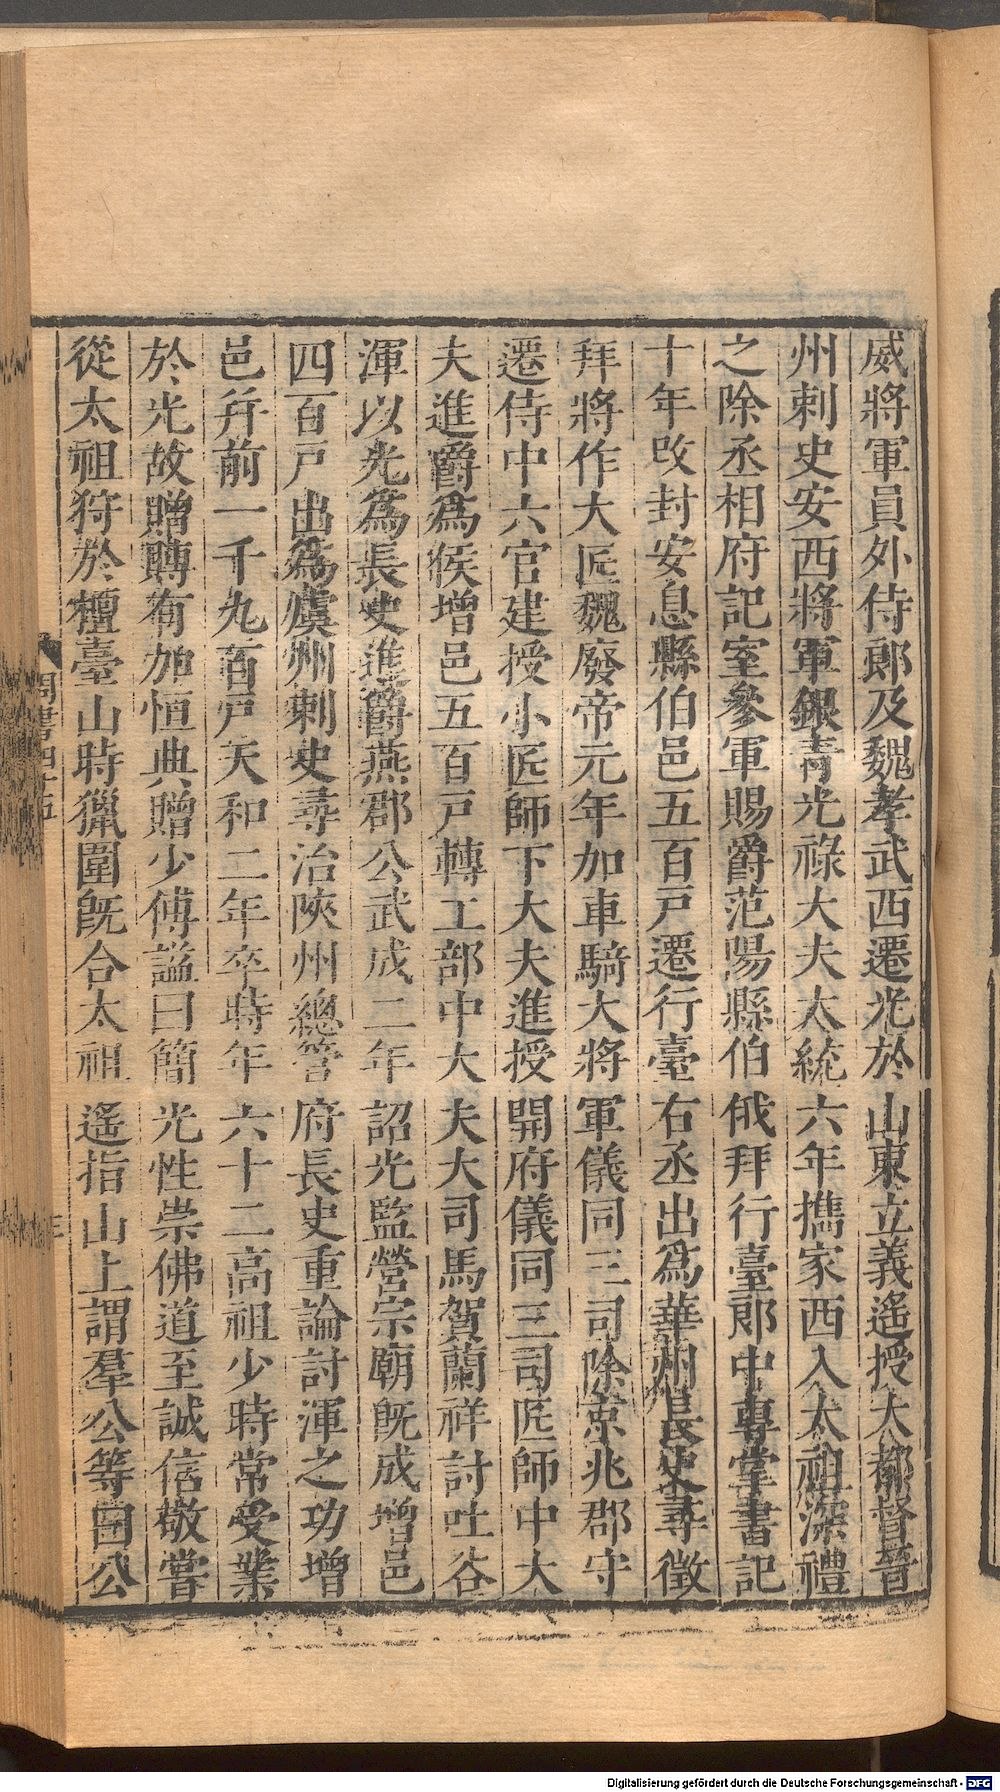 威將軍員外侍郎及魏孝武西遷光於山東立義遙授大都督晉
州刺史安西將軍銀青光祿大夫太統六年攜家西入太祖深禮
之除丞相府記室參軍賜爵范陽縣伯俄拜行臺郎中專掌書記
十年改封安息縣伯邑五百戸遷行臺右丞出爲華州長史尋徵
拜將作大匠魏廢帝元年加車騎大將軍儀同三司除京兆郡守
遷侍中六官建授小匠師下大夫進授開府儀同三司匠師中大
夫進爵爲侯增邑五百戸轉工部中大夫大司馬賀蘭祥討吐谷
渾以光爲長史進爵燕郡公武成二年詔光監營宗廟既成增邑
四百戸出爲虞州刺史尋治陝州總管府長史重論討渾之功增
邑并前一千九百戸天和二年卒時年六十二高祖少時常受業
於光故贈賻有加恒典贈少傅謚曰簡光性崇佛道至誠信敬嘗
從太祖狩於檀臺山時獵圍既合太祖遙指山上謂羣公等曰公
周書四十五